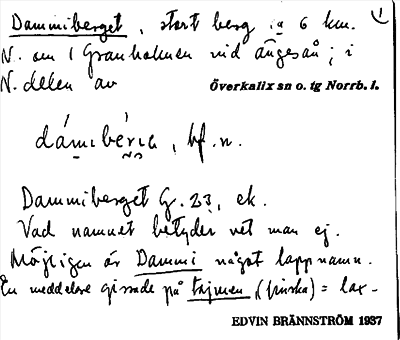 Dammiberget, stort berg ca 6 km. 1
N. om 1 Granholmen vid Ängesån; i
N. delen av Överkalix sn o. tg Norrb. l.
bf. n.
Dammiberget G. 23, ek.
Vad namnet betyder vet man ej.
Möjligen är Dammi något lappnamn.
En meddelare gissade på tajmen, (finska) = lax-
EDVIN BRÄNNSTRÖM 1937